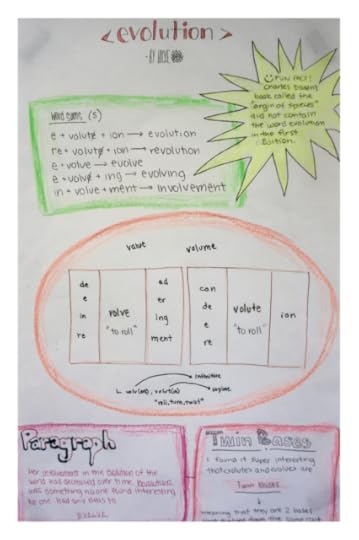 <evolution>
- BY
FUN FACT!
Charles Darwin's
book called the
"orgin of species"
did not contain
the word evolution
in the first
Edition.
Word sums (5)
e + volute + ion → evolution
re + volute + ion → revolution
e + volve → evolve
e + volve + ing → evolving
in + volve + ment → involvement
valve volume
de
e
in
re
volve
"to roll"
ed
er
ing
ment
con
de
e
re
volute
"to roll"
ion
infinitive
L volv(ere), volut(us) → supine
"roll, turn, twist"
Paragraph
Her involvement in the evolution of the
world had evolved over time. Revolution
was something no one found interesting
no one had
evolve
Twin Bases
I found it super interesting
that volute and volve are
Twin Bases
↓
meaning that they are 2 bases